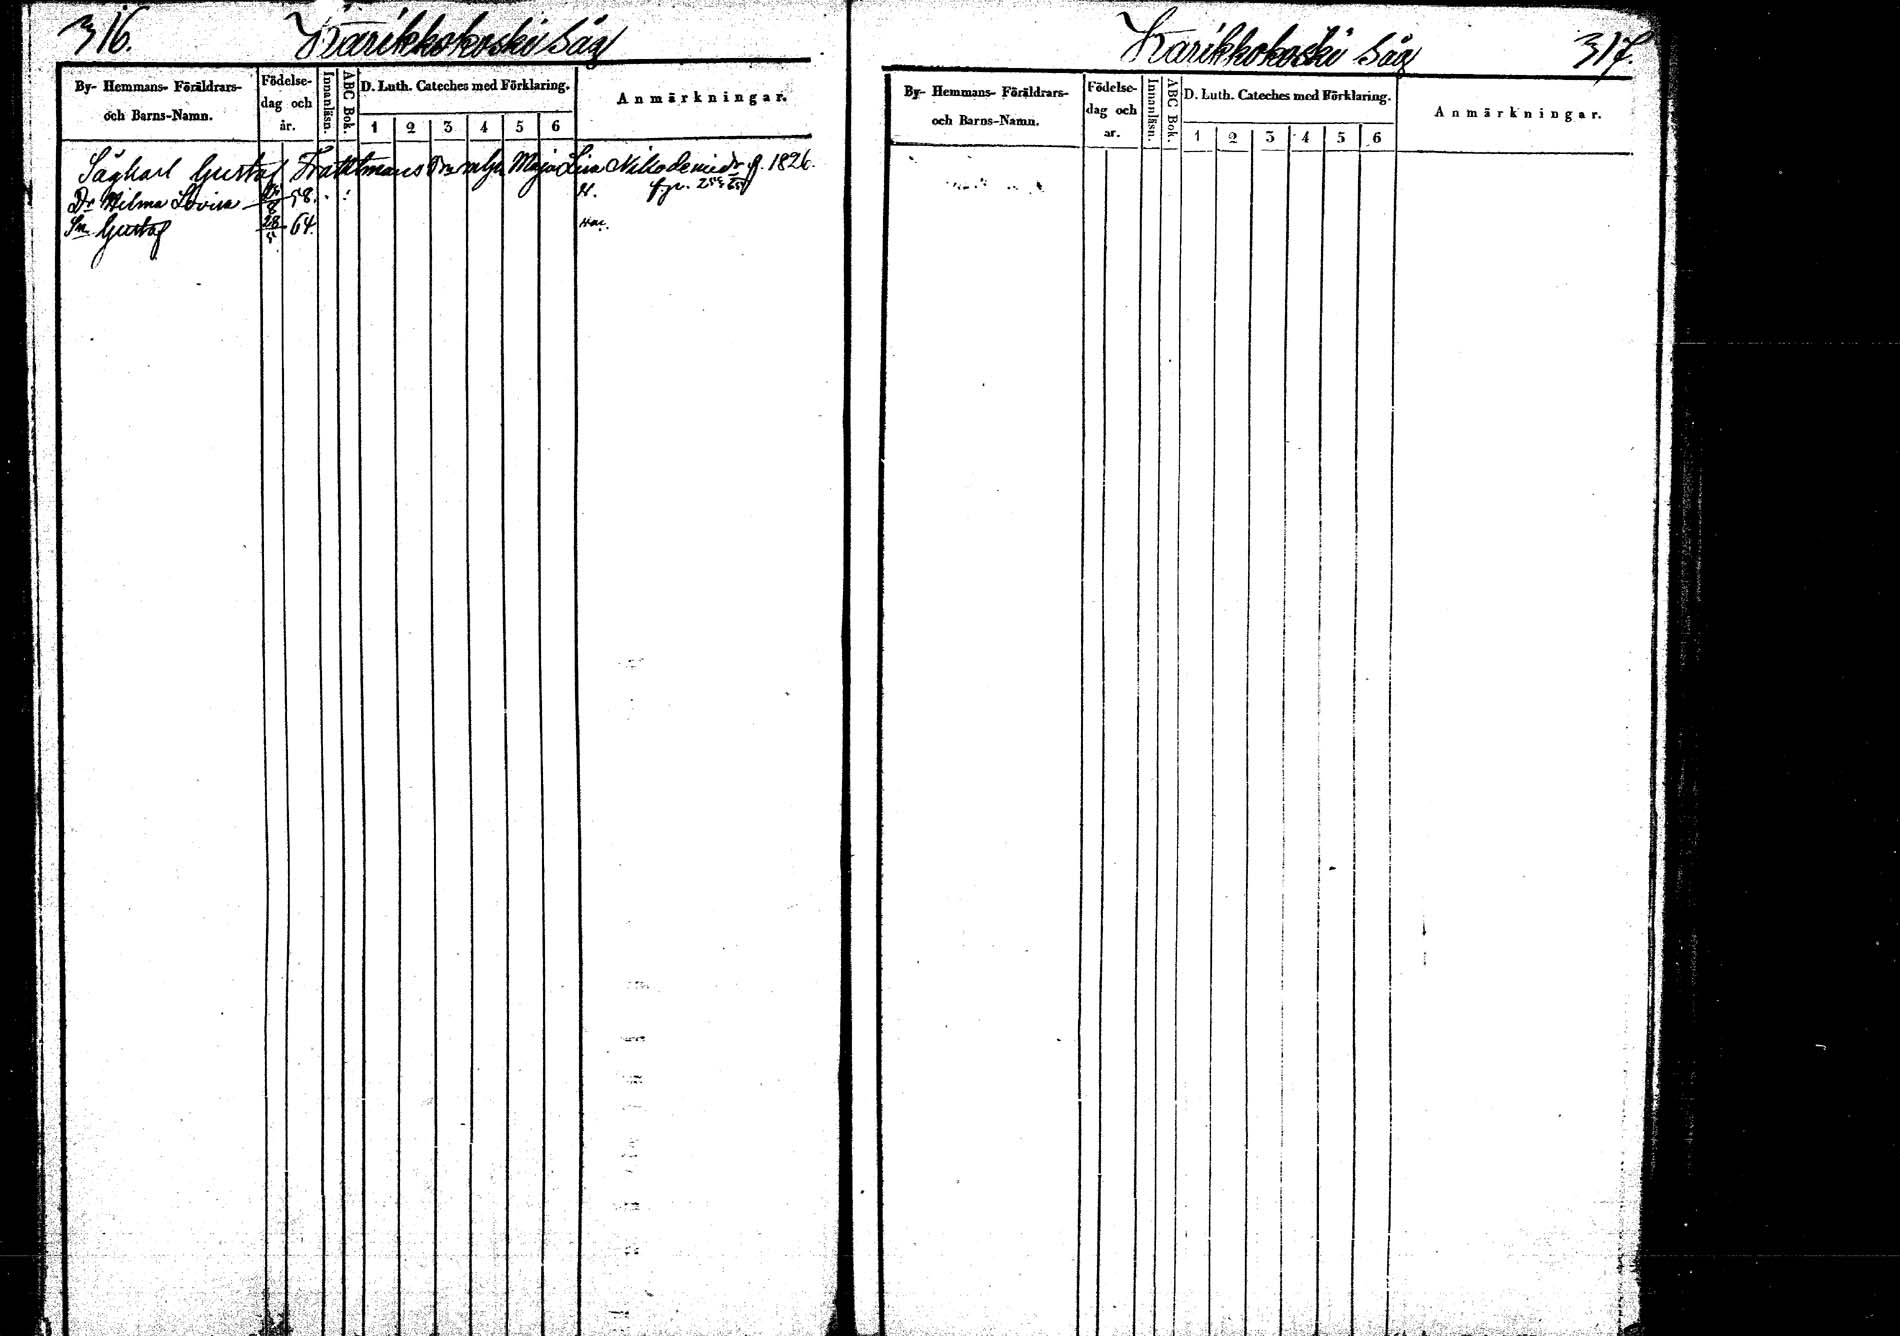 316.
Karikkokoski Såg
By- Hemmans- Föräldrars-
och Barns-Namn.
Födelse-
dag och
år.
Innanläsn.
ABC Bok.
D. Luth. Cateches med Förklaring.
1 2 3 4 5 6
Anmärkningar.
Sågkarl Gustaf Maja Lisa Nikodemidr f. 1826.
Dr Hilma Lovisa 58.
Sn Gustaf 28/5 64.
Karikkokoski Såg
317.
By- Hemmans- Föräldrars-
och Barns-Namn.
Födelse-
dag och
ar.
Innanläsn.
ABC Bok.
D. Luth. Cateches med Förklaring.
1 2 3 4 5 6
Anmärkningar.